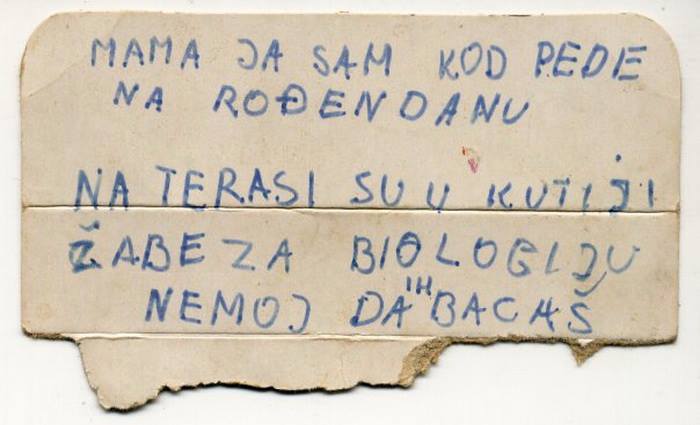 MAMA JA SAM KOD PEDE
NA ROĐENDANU
NA TERASI SU U KUTIJI
ŽABE ZA BIOLOGIJU
NEMOJ DA IH BACAŠ